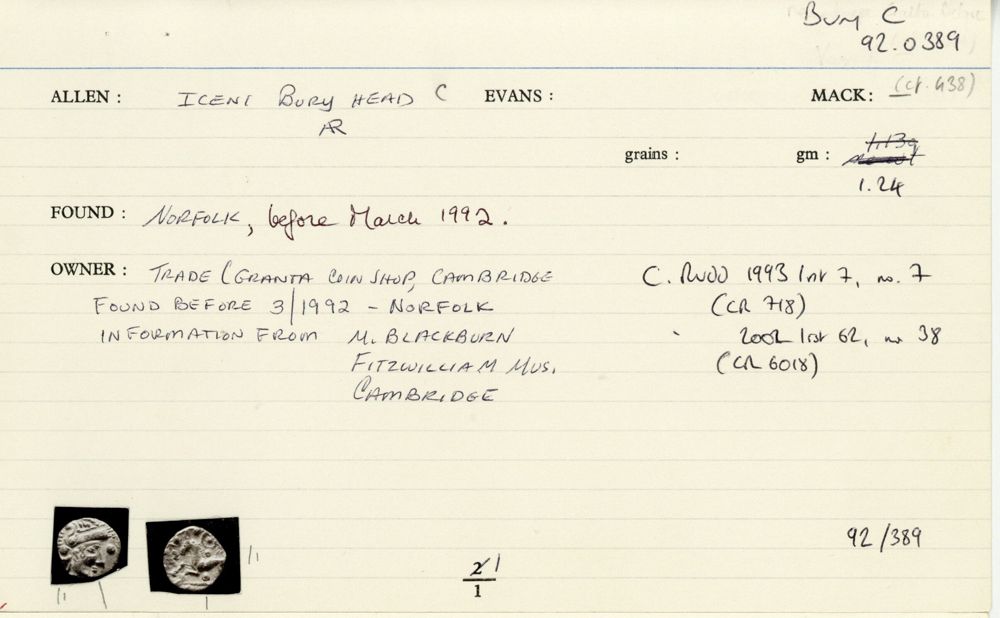 BURY C
92.0389
ALLEN : ICENI BURY HEAD C EVANS : MACK: (cf. 438)
AR
grains : gm : 1.13g
1.24
FOUND : NORFOLK, before March 1992.
OWNER : TRADE (GRANTA COIN SHOP, CAMBRIDGE C. RUDD 1993 list 7, no. 7
FOUND BEFORE 3/1992 - NORFOLK (CR 718)
INFORMATION FROM M. BLACKBURN 2002 list 62, no 38
FITZWILLIAM MUS. (CR 6018)
CAMBRIDGE
92/389
2 1
1